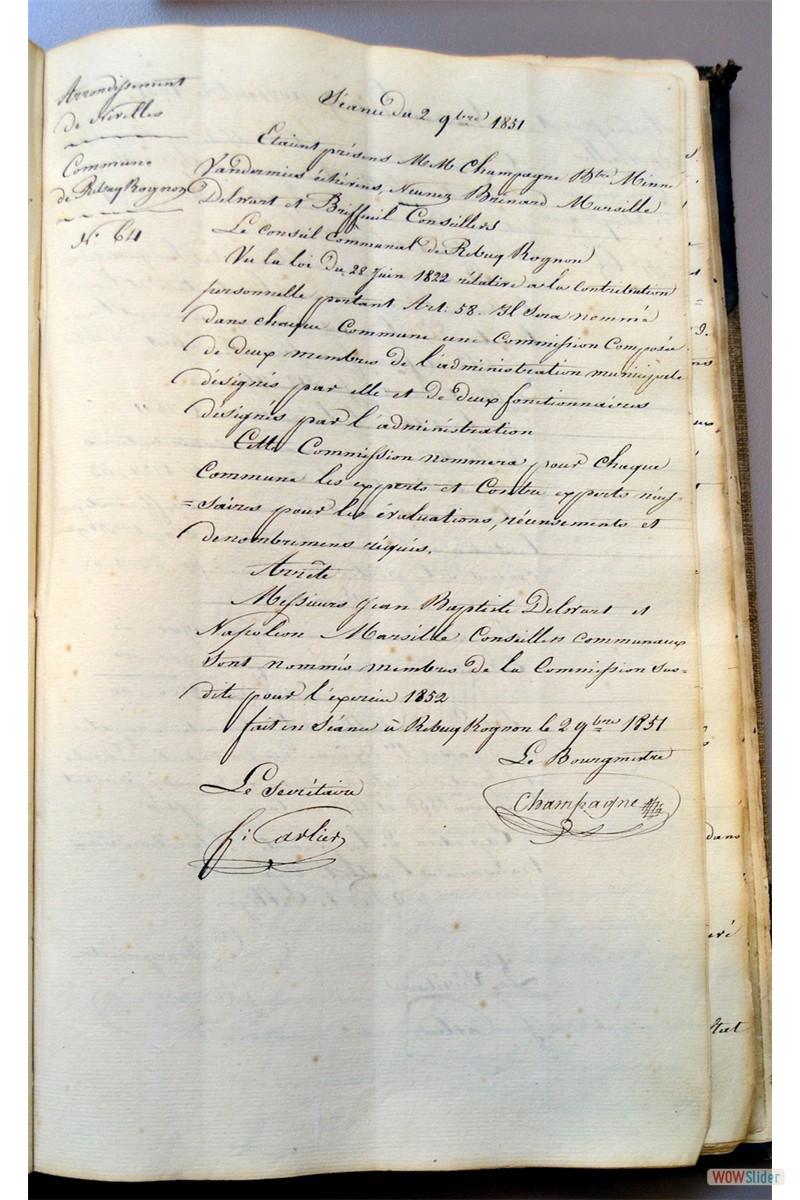 Arrondissement
de Nivelles
Commune
de Rebecq Rognon
N° 64
Séance du 2 9bre 1851
Etaient présens MM Champagne Btre Minne
Vandermies échevins, Neunez Brénard Marseille
Delwart et Briffeuil Conseillers
Le Conseil Communal de Rebecq Rognon
Vu la loi du 28 Juin 1822 rélative a la contribution
personnelle portant Art. 58. Il sera nommé
dans chaque Commune une Commission Composée
de deux membres de l'administration municipale
désignés par elle et de deux fonctionnaires
désignés par l'administration
Cette Commission nommera pour chaque
Commune les experts et Contre experts néces
=saires pour les évaluations, récensements et
denombremens réquis.
Arrête
Messieurs Jean Baptiste Delwart et
Napoléon Marseille Conseillers communaux
sont nommés membres de la Commission sus=
dite pour l'exercice 1852
fait en séance à Rebecq Rognon le 2 9bre 1851
Le Bourgmestre
Champagne
Le Secrétaire
Carlier
dans
éré
tat
WOWSlider